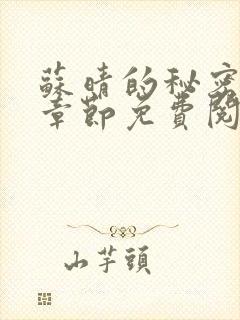 蘇晴的秘密
章節免費閱
山芋頭